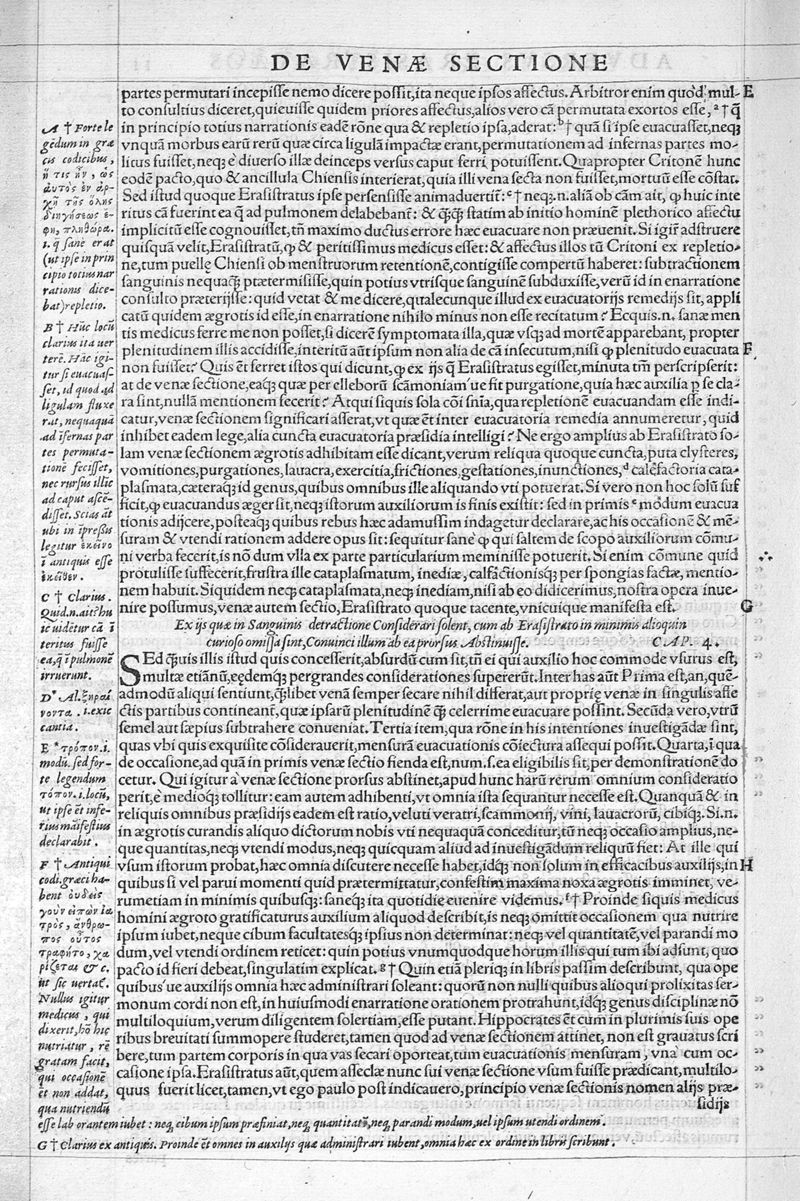 DE VENÆ SECTIONE
partes permutari incepisse nemo dicere possit, ita neque ipsos affectus. Arbitror enim quod mul- E
to consultius diceret, quieuisse quidem priores affectus, alios vero cã permutata exortos esse, ᵃ † q̃
in principio totius narrationis eadẽ rõne qua & repletio ipsa, aderat: ᵇ † quã si ipse euacuasset, neq;
vnquã morbus earũ rerũ quæ circa ligulã impactæ erant, permutationem ad infernas partes mo-
litus fuisset, neq; è diuerso illæ deinceps versus caput ferri potuissent. Quapropter Critonẽ hunc
eodẽ pacto, quo & ancillula Chiensis interierat, quia illi vena secta non fuisset, mortuũ esse cõstat.
Sed istud quoque Erasistratus ipse persensisse animaduertit: ᶜ † neq;.n. aliã ob cãm ait, ꝙ huic inte
ritus cã fuerint ea q̃ ad pulmonem delabebant̃: & q̃q̃ statim ab initio hominẽ plethorico affectu
implicitũ esse cognouisset, tñ maximo ductus errore hæc euacuare non præuenit. Si igit̃ adstruere
quisquã velit, Erasistratũ, ꝙ & peritissimus medicus esset: & affectus illos tũ Critoni ex repletio-
ne, tum puellę Chiensi ob menstruorum retentionẽ, contigisse compertũ haberet: subtractionem
sanguinis nequaq̃ prætermisisse, quin potius vtrisque sanguinẽ subduxisse, verũ id in enarratione
consulto præterijsse: quid vetat & me dicere, qualecunque illud ex euacuatorijs remedijs sit, appli
catũ quidem ægrotis id esse, in enarratione nihilo minus non esse recitatum? Ecquis.n. sanæ men
tis medicus ferre me non posset, si dicerẽ symptomata illa, quæ vsq; ad mortẽ apparebant, propter
plenitudinem illis accidisse, interitũ aũt ipsum non alia de cã insecutum, nisi ꝙ plenitudo euacuata F
non fuisset? Quis ẽt ferret istos qui dicunt, ꝙ ex ijs q̃ Erasistratus egisset, minuta tm̃ perscripserit:
at de venæ sectione, eaq; quæ per elleborũ scãmoniãm'ue fit purgatione, quia hæc auxilia p se cla-
ra sint, nullã mentionem fecerit? Atqui siquis sola cõi snia, qua repletionẽ euacuandam esse indi-
catur, venæ sectionem significari asserat, vt quæ ẽt inter euacuatoria remedia annumeretur, quid
inhibet eadem lege, alia cuncta euacuatoria præsidia intelligi? Ne ergo amplius ab Erasistrato so-
lam venæ sectionem ægrotis adhibitam esse dicant, verum reliqua quoque cuncta, puta clysteres,
vomitiones, purgationes, lauacra, exercitia, frictiones, gestationes, inunctiones, ᵈ calẽfactoria cata-
plasmata, cæteraq; id genus, quibus omnibus ille aliquando vti potuerat. Si vero non hoc solũ suf
ficit, ꝙ euacuandus æger sit, neq; istorum auxiliorum is finis existit: sed in primis ᵉ modum euacua
tionis adijcere, posteaq; quibus rebus hæc adamussim indagetur declarare, ac his occasionẽ & mẽ-
suram & vtendi rationem addere opus sit: sequitur sanè ꝙ qui saltem de scopo auxiliorum cõmu-
ni verba fecerit, is nõ dum vlla ex parte particularium meminisse potuerit. Si enim cõmune quid
protulisse suffecerit, frustra ille cataplasmatum, inediæ, calfactionisq; per spongias factæ, mentio-
nem habuit. Siquidem neq; cataplasmata, neq; inediam, nisi ab eo didicerimus, nostra opera inue-
nire possumus, venæ autem sectio, Erasistrato quoque tacente, vnicuique manifesta est. G
Ex ijs quæ in Sanguinis detractione Considerari solent, cum ab Erasistrato in minimis alioquin
curioso omissa sint, Conuinci illum ab ea prorsus Abstinuisse. CAP. 4.
SEd q̃uis illis istud quis concesserit, absurdũ cum sit, tñ ei qui auxilio hoc commode vsurus est,
multæ etiãnũ, eędemq; pergrandes considerationes supererũt. Inter has aũt Prima est, an, quẽ-
admodũ aliqui sentiunt, q̃libet venã semper secare nihil differat, aut proprię venæ in singulis affe
ctis partibus contineant̃, quæ ipsarũ plenitudinẽ q̃ celerrime euacuare possint. Secũda vero, vtrũ
semel aut sæpius subtrahere conueniat. Tertia item, qua rõne in his intentiones inuestigãdæ sint,
quas vbi quis exquisite cõsiderauerit, mensurã euacuationis cõiectura assequi possit. Quarta, ĩ qua
de occasione, ad quã in primis venæ sectio fienda est, num.s. ea eligibilis sit, per demonstrationẽ do
cetur. Qui igitur à venæ sectione prorsus abstinet, apud hunc harũ rerum omnium consideratio
perit, è medioq; tollitur: eam autem adhibenti, vt omnia ista sequantur necesse est. Quanquã & in
reliquis omnibus præsidijs eadem est ratio, veluti veratri, scammonij, vini, lauacrorũ, cibiq;. Si.n.
in ægrotis curandis aliquo dictorum nobis vti nequaquã conceditur, tũ neq; occasio amplius, ne-
que quantitas, neq; vtendi modus, neq; quicquam aliud ad inuestigãdum reliquũ fiet: At ille qui
vsum istorum probat, hæc omnia discutere necesse habet, idq; non solum in efficacibus auxilijs, in H
quibus si vel parui momenti quid prætermittatur, confestim maxima noxa ægrotis imminet, ve-
rumetiam in minimis quibusq;: saneq; ita quotidie euenire videmus. ᶠ † Proinde siquis medicus
homini ægroto gratificaturus auxilium aliquod describit, is neq; omittit occasionem qua nutrire
ipsum iubet, neque cibum facultatesq; ipsius non determinat: neq; vel quantitatẽ, vel parandi mo
dum, vel vtendi ordinem reticet: quin potius vnumquodque horum illis qui tum ibi adsunt, quo
pacto id fieri debeat, singulatim explicat. ᵍ † Quin etiã pleriq; in libris passim describunt, qua ope
quibus'ue auxilijs omnia hæc administrari soleant: quorũ non nulli quibus alioqui prolixitas ser-
monum cordi non est, in huiusmodi enarratione orationem protrahunt, idq; genus disciplinæ nõ
multiloquium, verum diligentem solertiam, esse putant. Hippocrates ẽt cum in plurimis suis ope
ribus breuitati summopere studeret, tamen quod ad venæ sectionem attinet, non est grauatus scri
bere, tum partem corporis in qua vas secari oporteat, tum euacuationis mensuram, vna cum oc-
casione ipsa. Erasistratus aũt, quem asseclæ nunc sui venæ sectione vsum fuisse prædicant, multilo-
quus fuerit licet, tamen, vt ego paulo post indicauero, principio venæ sectionis nomen alijs præ-
sidijs
A † Forte le
gẽdum in græ
cis codicibus,
ἥ τις ἦν, ὡς
αὐτὸς ἐν ἀρ-
χῇ τῆς ὅλης
διηγήσεως ἔ-
φη, πληθώρα.
i. q̃ sanè erat
(ut ipse in prin
cipio totius nar
rationis dice-
bat) repletio.
B † Hũc locũ
clarius ita uer
terẽ. Hãc igi-
tur si euacuas-
set, id quod ad
ligulam fluxe
rat, nequaquã
ad ĩfernas par
tes permuta-
tionẽ fecisset,
nec rursus illic
ad caput ascẽ-
disset. Scias āt
ubi in ĩpressis
legitur ἐκεῖνο
ĩ antiquis esse
ἐκεῖθεν.
C † Clarius.
Quid.n. aitẽ hu
ic uidetur cã ĩ
teritus fuisse
ea, q̃ ĩ pulmonẽ
irruerunt.
Dᵃ Al. ξηραί
νοντα. i. exic
cantia.
E ᵃ τρόπον. i.
modũ. sed for-
te legendum
τόπον. i. locũ,
ut ipse ẽt infe-
rius mãifestius
declarabit.
F † Antiqui
codi. græci ha-
bent οὐδεὶς
γοῦν εἰπὼν ἰα
τρὸς, ἄνθρω-
πος οὗτος
τραφήτο, χα
ρίζεται & c.
ut sic uertat̃.
Nullus igitur
medicus, qui
dixerit, hõ hic
nutriatur, rẽ
gratam facit,
qui occasionẽ
et non addat,
qua nutriendũ
esse laborantem iubet: neq; cibum ipsum præfiniat, neq; quantitatẽ, neq; parandi modum, uel ipsum utendi ordinem.
G † Clarius ex antiquis. Proinde ẽt omnes in auxilijs quæ administrari iubent, omnia hæc ex ordine in libris scribunt.